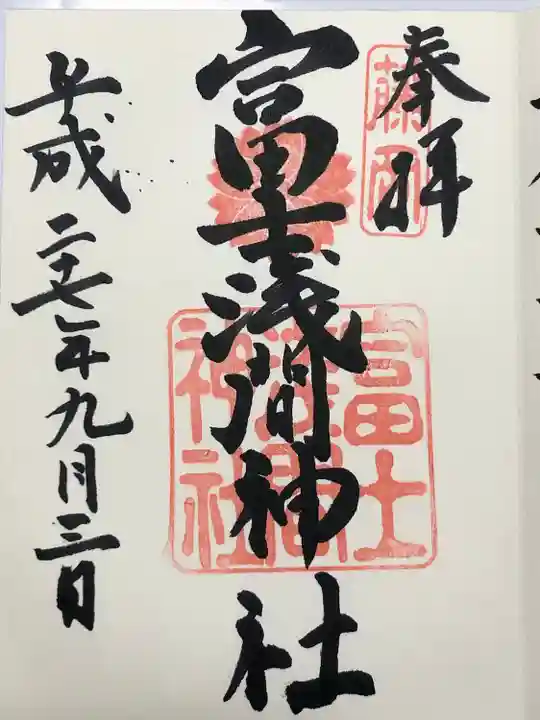 奉拝
藤西
富士浅間神社
富士
浅間
神社
平成二十七年九月三日